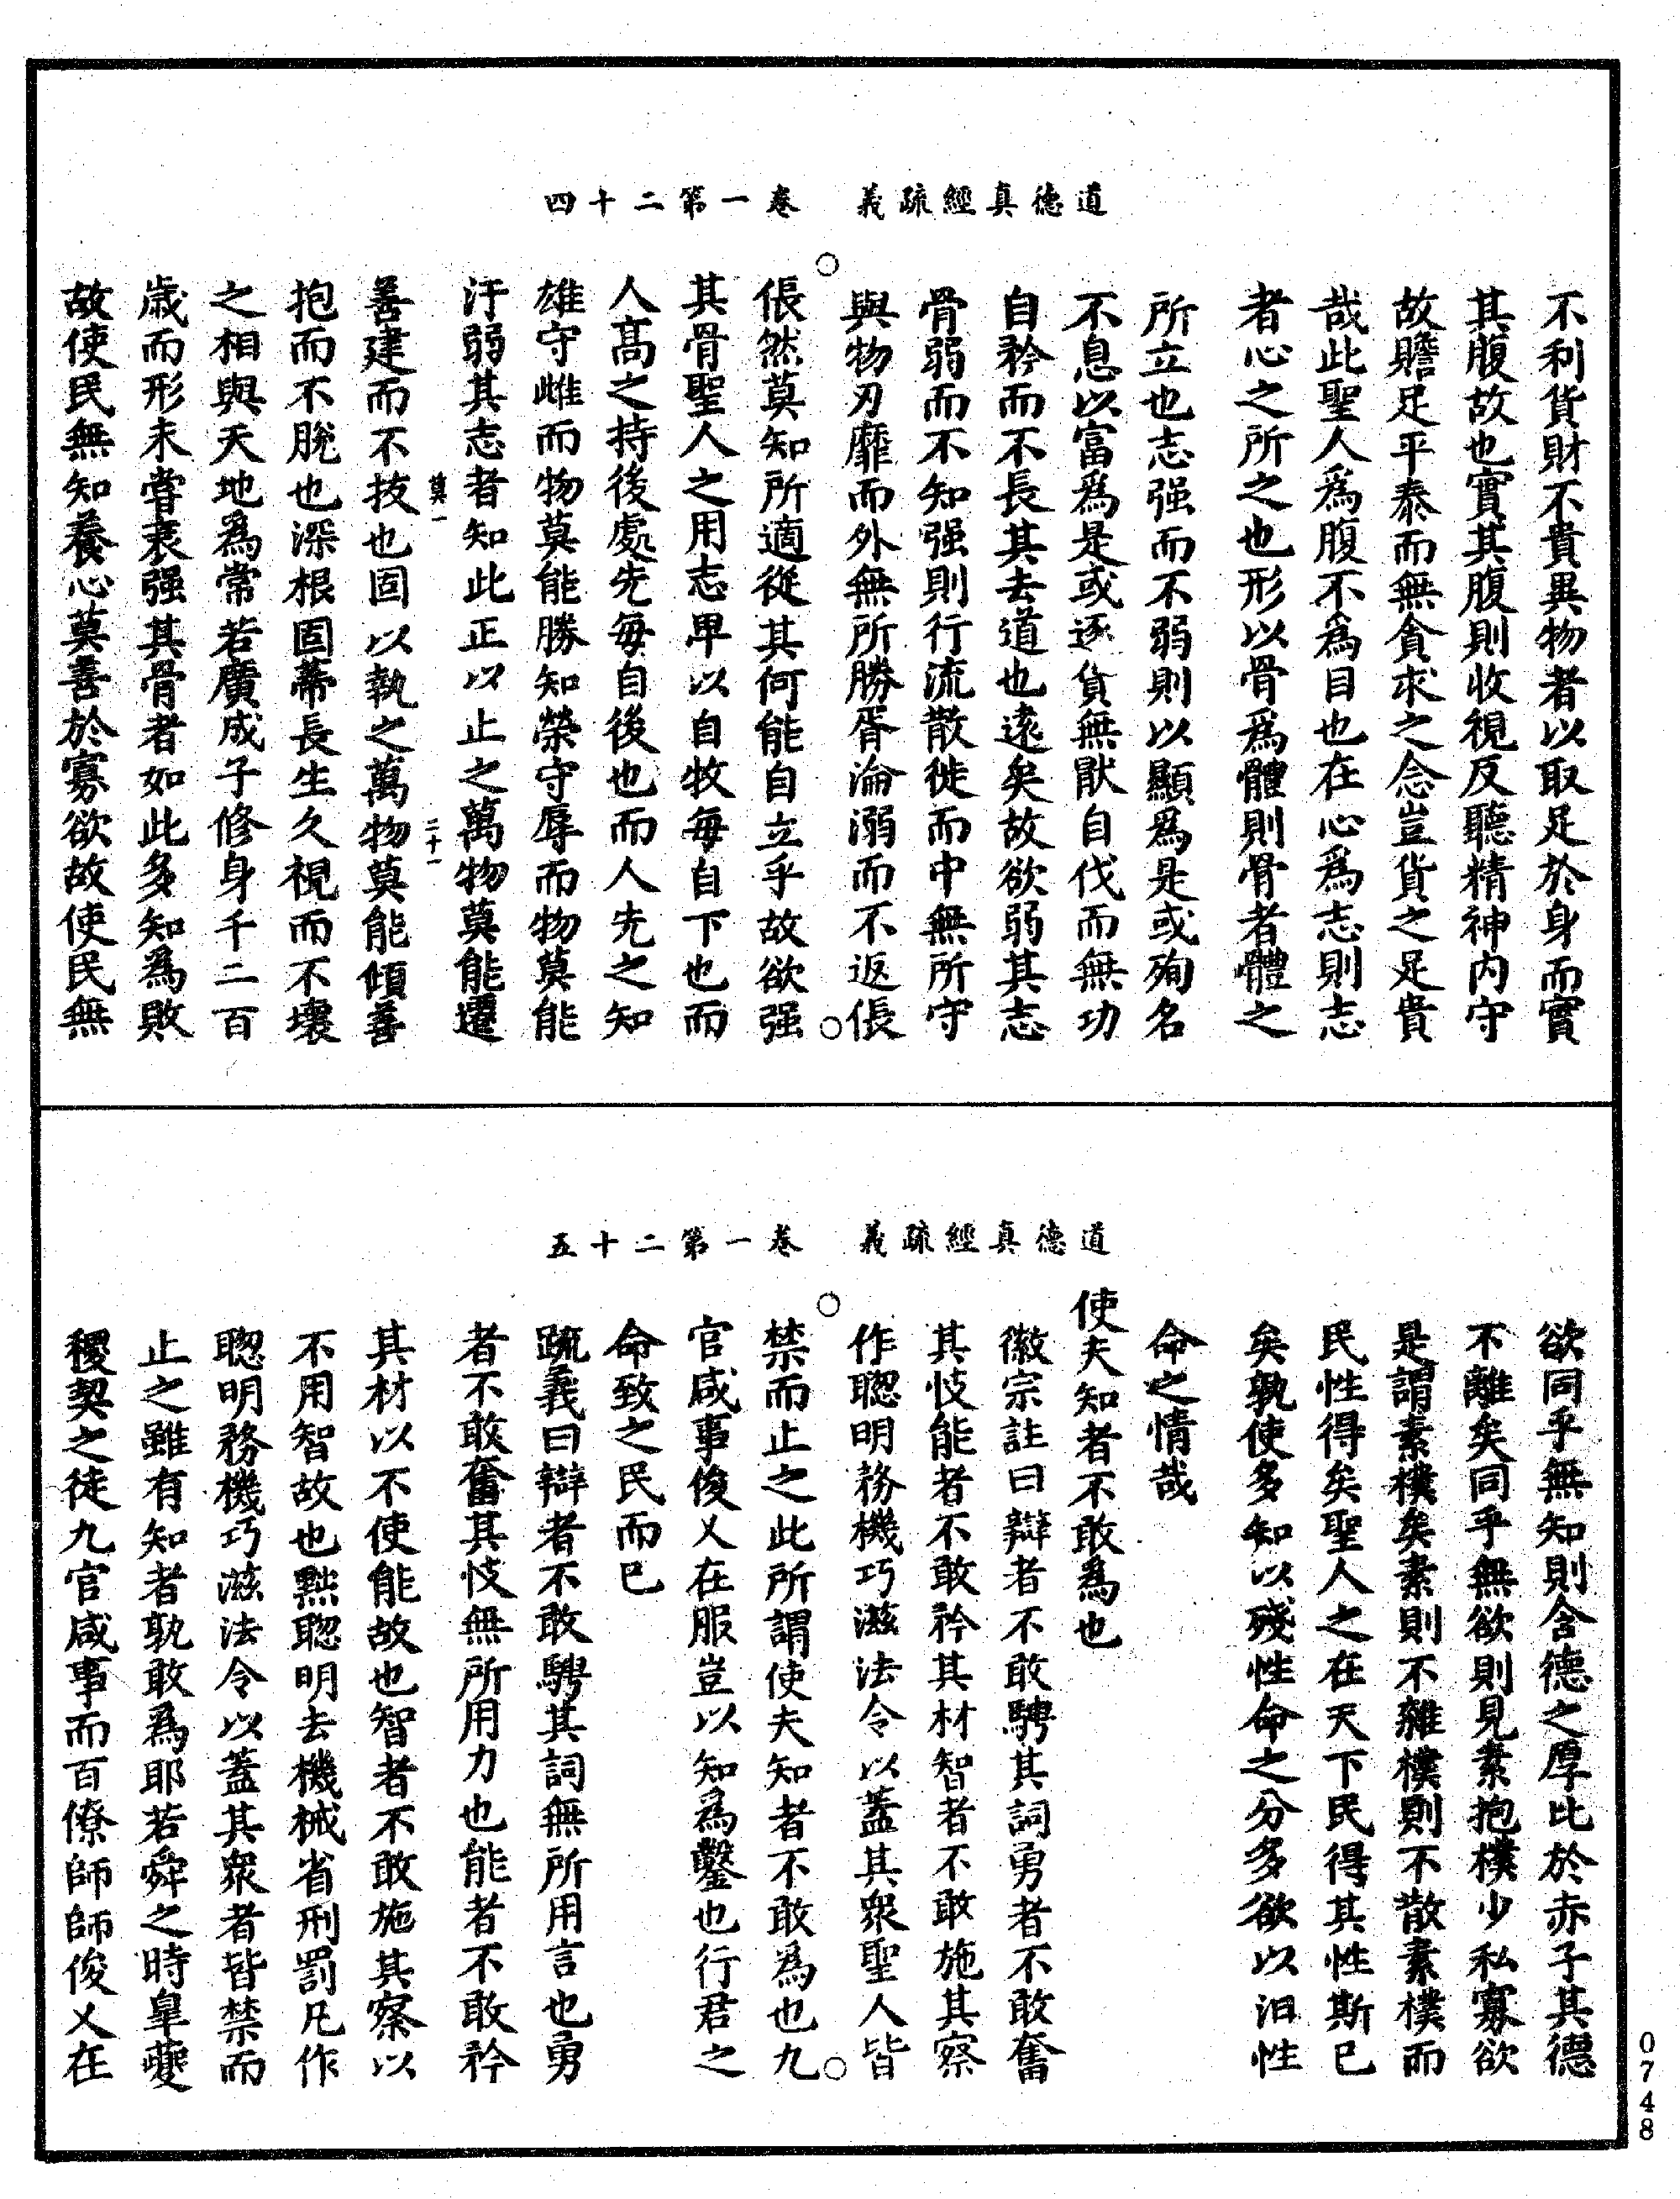 道德真經疏義　卷一第二十四
不利貨財不貴異物者以取足於身而實
其腹故也實其腹則收視反聽精神內守
故贍足平泰而無貪求之念豈貨之足貴
哉此聖人為腹不為目也在心為志則志
者心之所之也形以骨為體則骨者體之
所立也志强而不弱則以顯為是或殉名
不息以富為是或逐貨無猒自伐而無功
自矜而不長其去道也遠矣故欲弱其志
骨弱而不知强則行流散徙而中無所守
與物刃靡而外無所勝胥淪溺而不返倀
倀然莫知所適從其何能自立乎故欲强
其骨聖人之用志卑以自牧每自下也而
人高之持後處先每自後也而人先之知
雄守雌而物莫能勝知榮守辱而物莫能
汙弱其志者知此正以止之萬物莫能遷
莫一　二十一
善建而不抜也固以執之萬物莫能傾善
抱而不脫也深根固蔕長生久視而不壞
之相與天地為常若廣成子修身千二百
歲而形未嘗衰强其骨者如此多知為敗
故使民無知養心莫善於寡欲故使民無
道德真經疏義　卷一第二十五
欲同乎無知則含德之厚比於赤子其德
不離矣同乎無欲則見素抱樸少私寡欲
是謂素樸矣素則不雜樸則不散素樸而
民性得矣聖人之在天下民得其性斯已
矣孰使多知以殘性命之分多欲以汩性
命之情哉
使夫知者不敢為也
徽宗註曰辯者不敢騁其詞勇者不敢奮
其忮能者不敢矜其材智者不敢施其察
作聰明務機巧滋法令以蓋其衆聖人皆
禁而止之此所謂使夫知者不敢為也九
官咸事俊乂在服豈以知為鑿也行君之
命致之民而已
疏義曰辯者不敢騁其詞無所用言也勇
者不敢奮其忮無所用力也能者不敢矜
其材以不使能故也智者不敢施其察以
不用智故也黜聰明去機械省刑罰凡作
聰明務機巧滋法令以蓋其衆者皆禁而
止之雖有知者孰敢為耶若舜之時皐夔
稷契之徒九官咸事而百僚師師俊乂在
0748